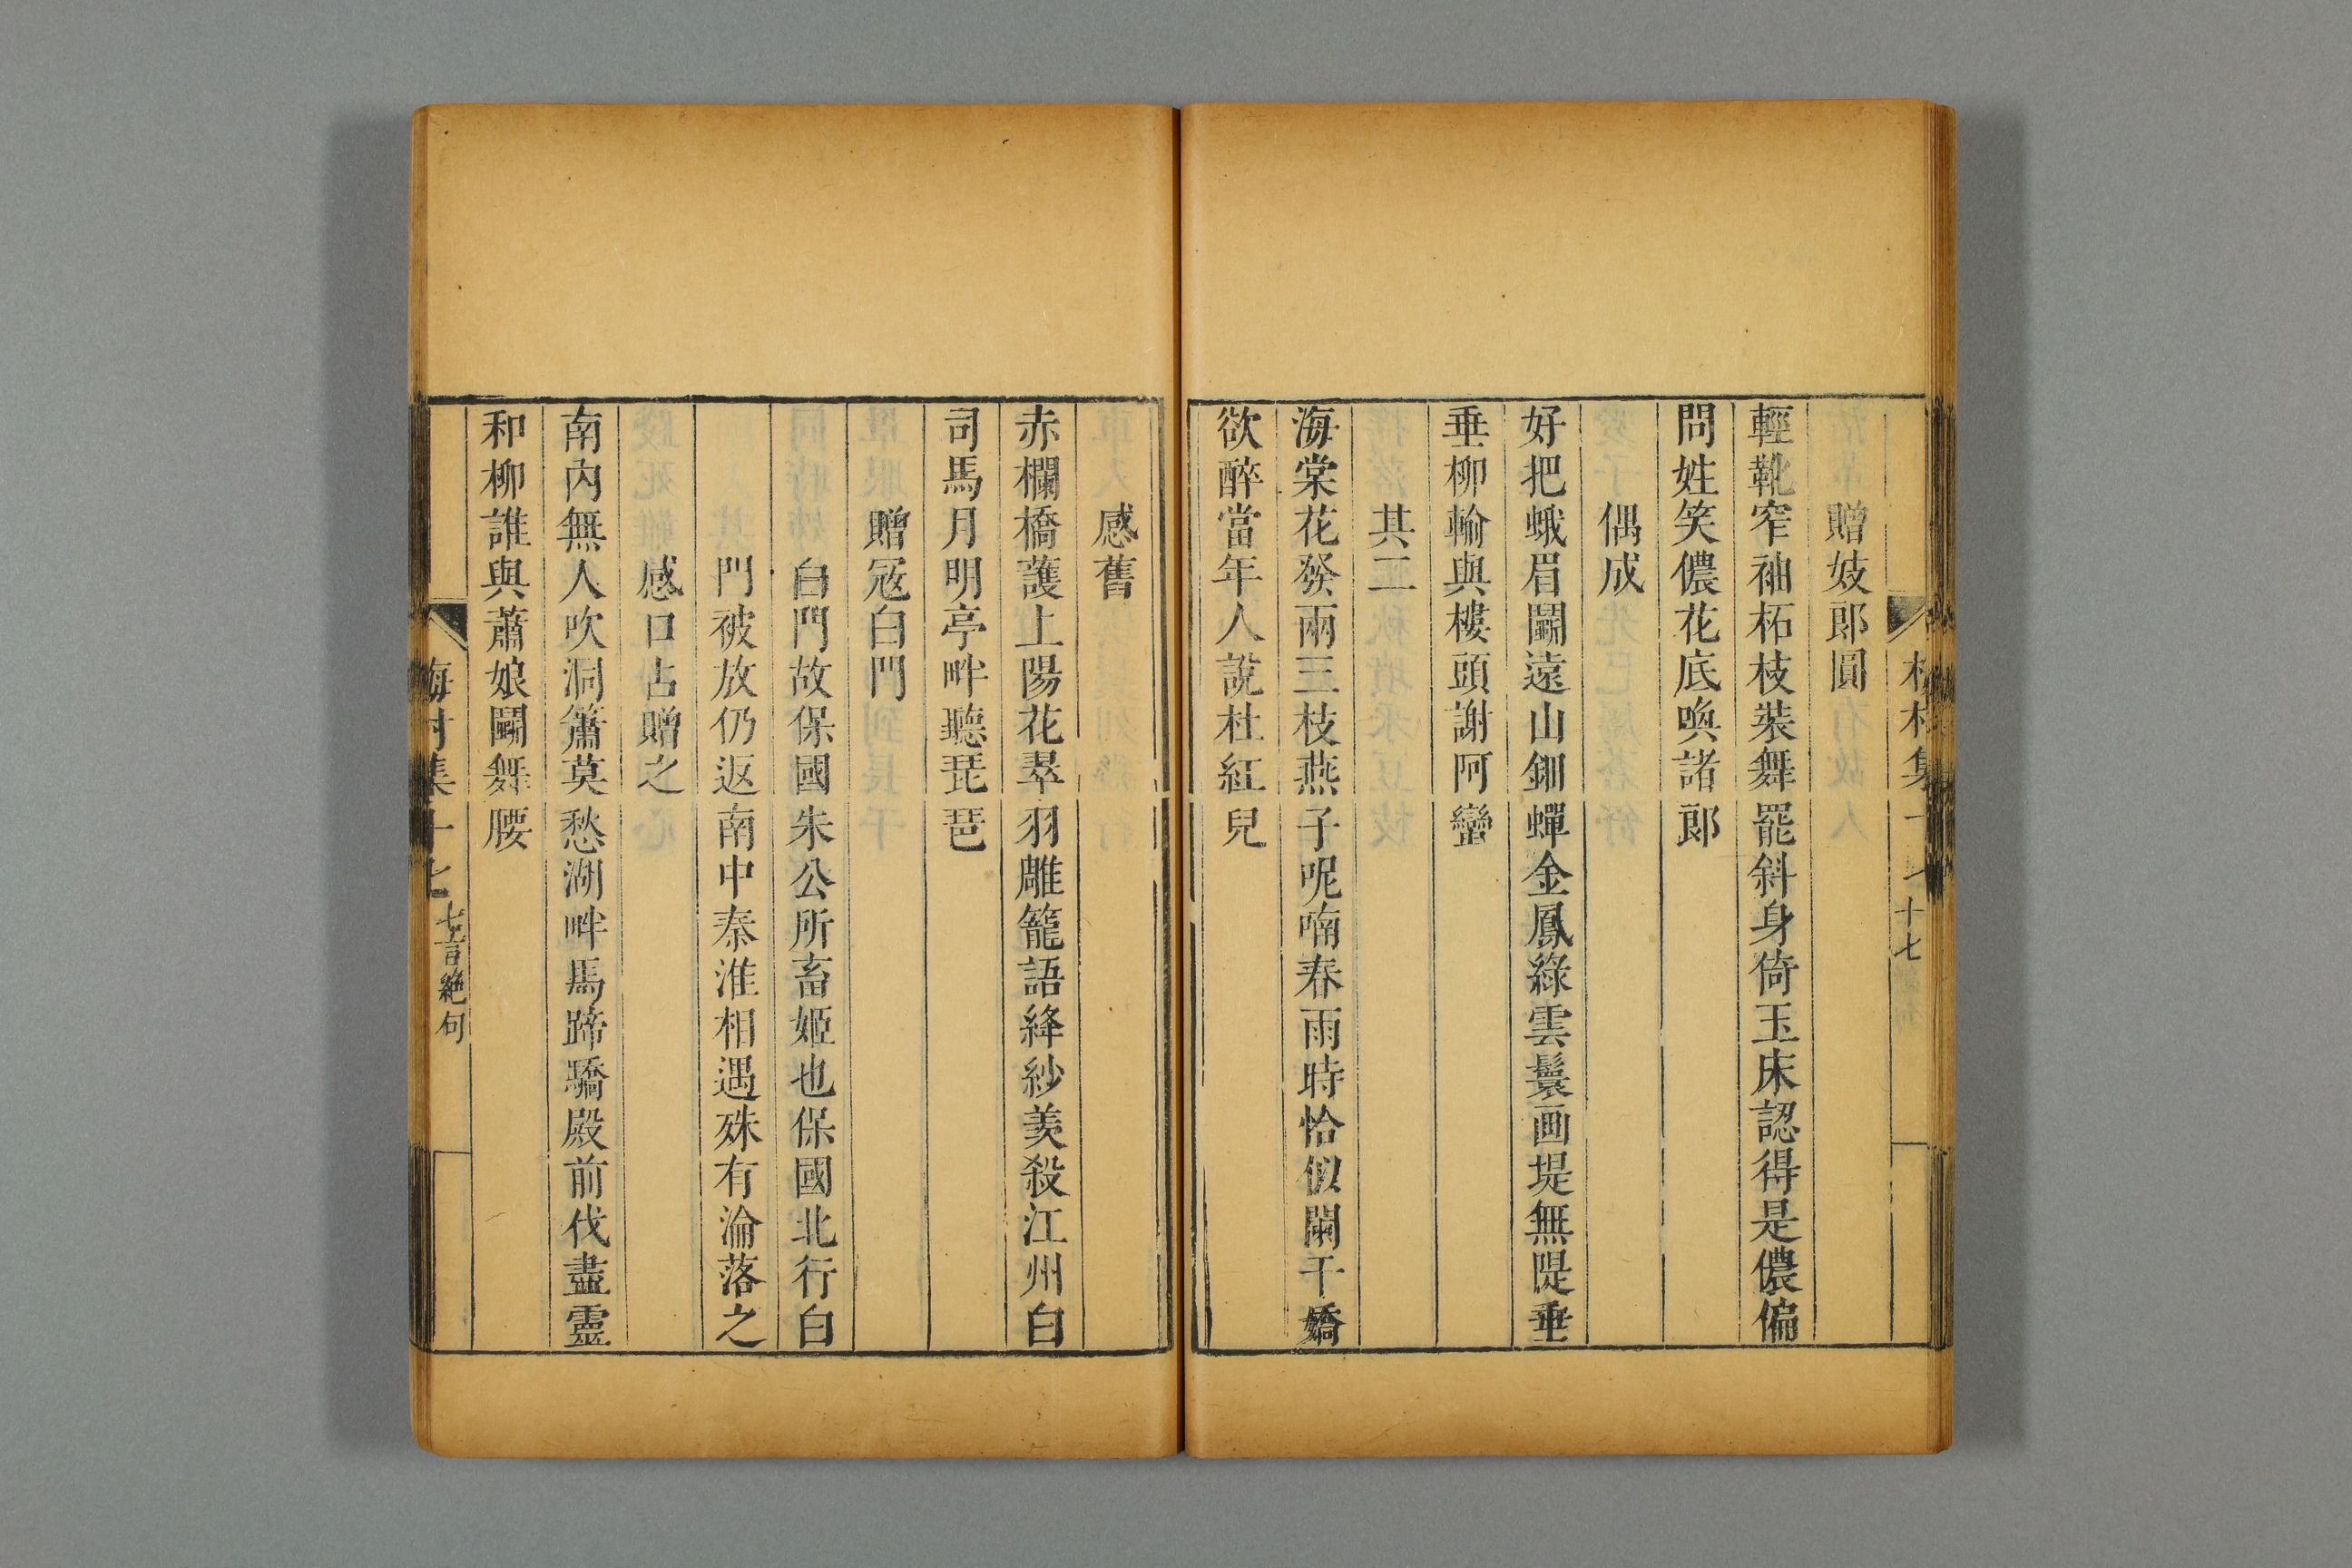 贈妓郎圓
輕靴窄袖柘枝裝舞罷斜身倚玉床認得是儂偏
問姓笑儂花底喚諸郎
偶成
好把蛾眉鬭遠山鈿蟬金鳳綠雲鬟画堤無限垂
垂柳輸與樓頭謝阿蠻
其二
海棠花發兩三枝燕子呢喃春雨時恰似闌干嬌
欲醉當年人說杜紅兒
感舊
赤欄橋護上陽花翠羽雕籠語絳紗羡殺江州白
司馬月明亭畔聽琵琶
贈寇白門
白門故保國朱公所畜姬也保國北行白
門被放仍返南中秦淮相遇殊有淪落之
感口占贈之
南內無人吹洞簫莫愁湖畔馬蹄驕殿前伐盡靈
和柳誰與蕭娘鬭舞腰
梅村集
十七
梅村集十七
七言絶句